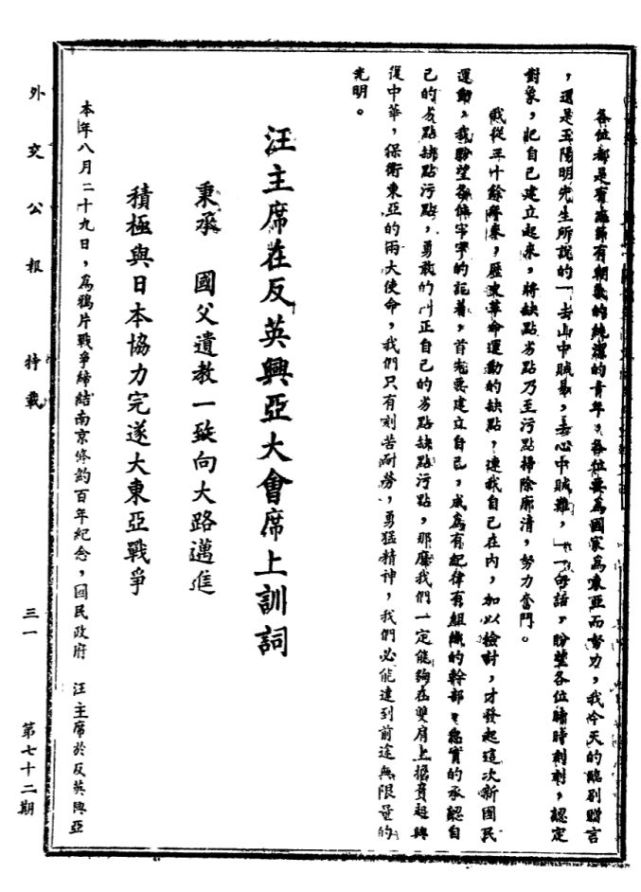 各位都是有志節有朝氣的純潔的青年，各位要為國家為東亞而努力，我今天的臨別贈言
，還是王陽明先生所說的「去山中賊易，去心中賊難，」一句話，盼望各位隨時刻刻，認定
對象，把自己建立起來，將缺點劣點乃至污點掃除廓清，努力奮鬥。
我從三十餘年來，歷來革命運動的缺點，連我自己在內，加以檢討，才發起這次新國民
運動，我盼望各位牢牢的記着，首先要建立自己，成為有紀律有組織的幹部，忠實的承認自
己的劣點缺點污點，勇敢的糾正自己的劣點缺點污點，那麼我們一定能夠在雙肩上擔負起興
復中華，保衛東亞的兩大使命，我們只有刻苦耐勞，勇猛精神，我們必能達到前途無限量的
光明。
汪主席在反英興亞大會席上訓詞
秉承　國父遺教一致向大路邁進
積極與日本協力完遂大東亞戰爭
本年八月二十九日，為鴉片戰爭締結南京條約百年紀念，國民政府　汪主席於反英興亞
外交公報　特載　三一　第七十二期